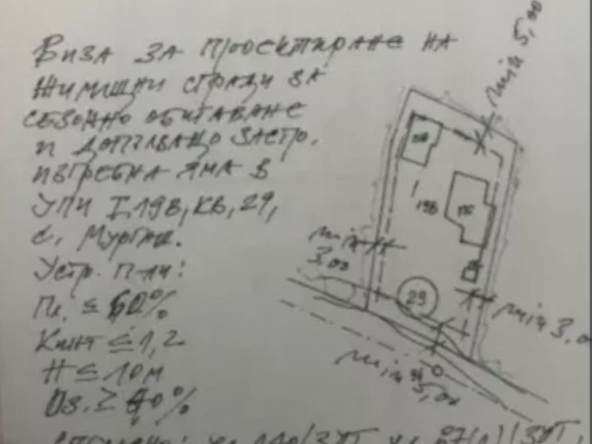 ВИЗА ЗА ПРОЕКТИРАНЕ НА
ЖИЛИЩНИ СГРАДИ ЗА
СЕЗОННО ОБИТАВАНЕ
И ДОПЪЛВАЩО ЗАСТР.
ИЗГРЕБНА ЯМА В
УПИ I 198, КВ, 29,
с. Мургаш.
Устр. п-ли:
Пл. ≤ 60%
Кинт ≤ 1,2
H ≤ 10 м
Оз. ≥ 40%
min 5,00
198
min
3,00
29
min 3,0
min 5,00